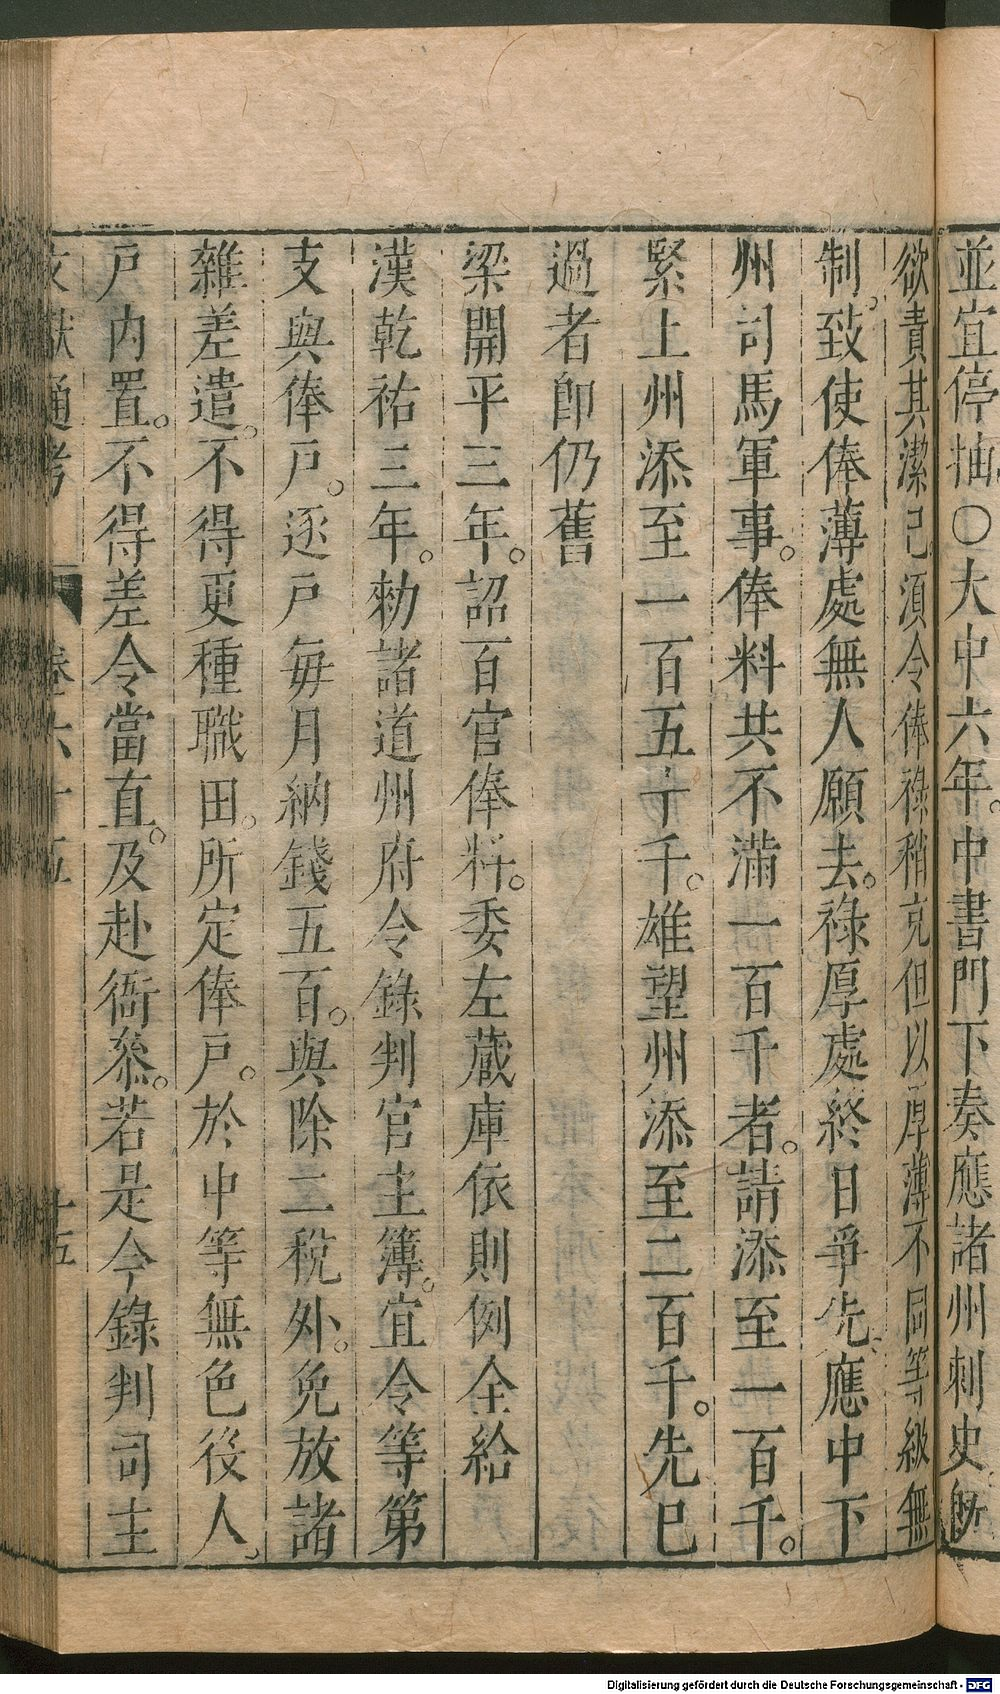 並宜停抽〇大中六年。中書門下奏應諸州刺史
欲責其潔己須令俸祿稍充但以厚薄不同等級無
制。致使俸薄處無人願去。祿厚處終日爭先。應中下
州司馬軍事。俸料共不滿一百千者。請添至一百千。
緊上州添至一百五十千。雄望州添至二百千。先已
過者即仍舊
梁開平三年。詔百官俸料。委左藏庫依則例全給
漢乾祐三年。勑諸道州府令錄判官主簿。宜令等第
支與俸戸。逐戸每月納錢五百。與除二稅外。免放諸
雜差遣。不得更種職田。所定俸戸。於中等無色役人。
戸內置。不得差令當直。及赴衙叅。若是令錄判司主
文獻通考 卷六十五 十五
Digitalisierung gefördert durch die Deutsche Forschungsgemeinschaft - DFG